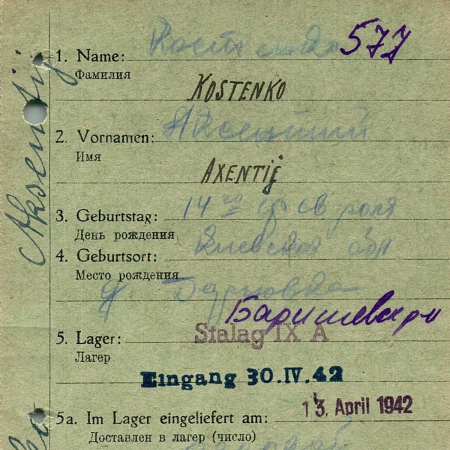 1. Name: 577
Фамилия
KOSTENKO
2. Vornamen:
Имя
AXENTIJ
3. Geburtstag: 14го февроля
День рождения
4. Geburtsort: Киевская обл
Место рождения
Баришевскри
5. Lager: Stalag IX A
Лагер
Eingang 30.IV.42
13. April 1942
5a. Im Lager eingeliefert am:
Доставлен в лагер (число)
Aksentij